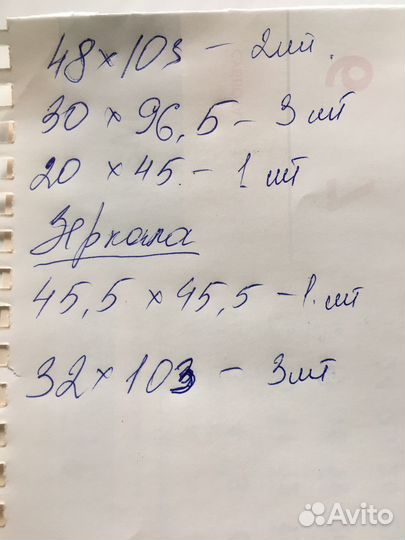 48 x 103 - 2 шт.
30 x 96,5 - 3 шт
20 x 45 - 1 шт
Зеркала
45,5 x 45,5 - 1 шт
32 x 103 - 3 шт
Avito